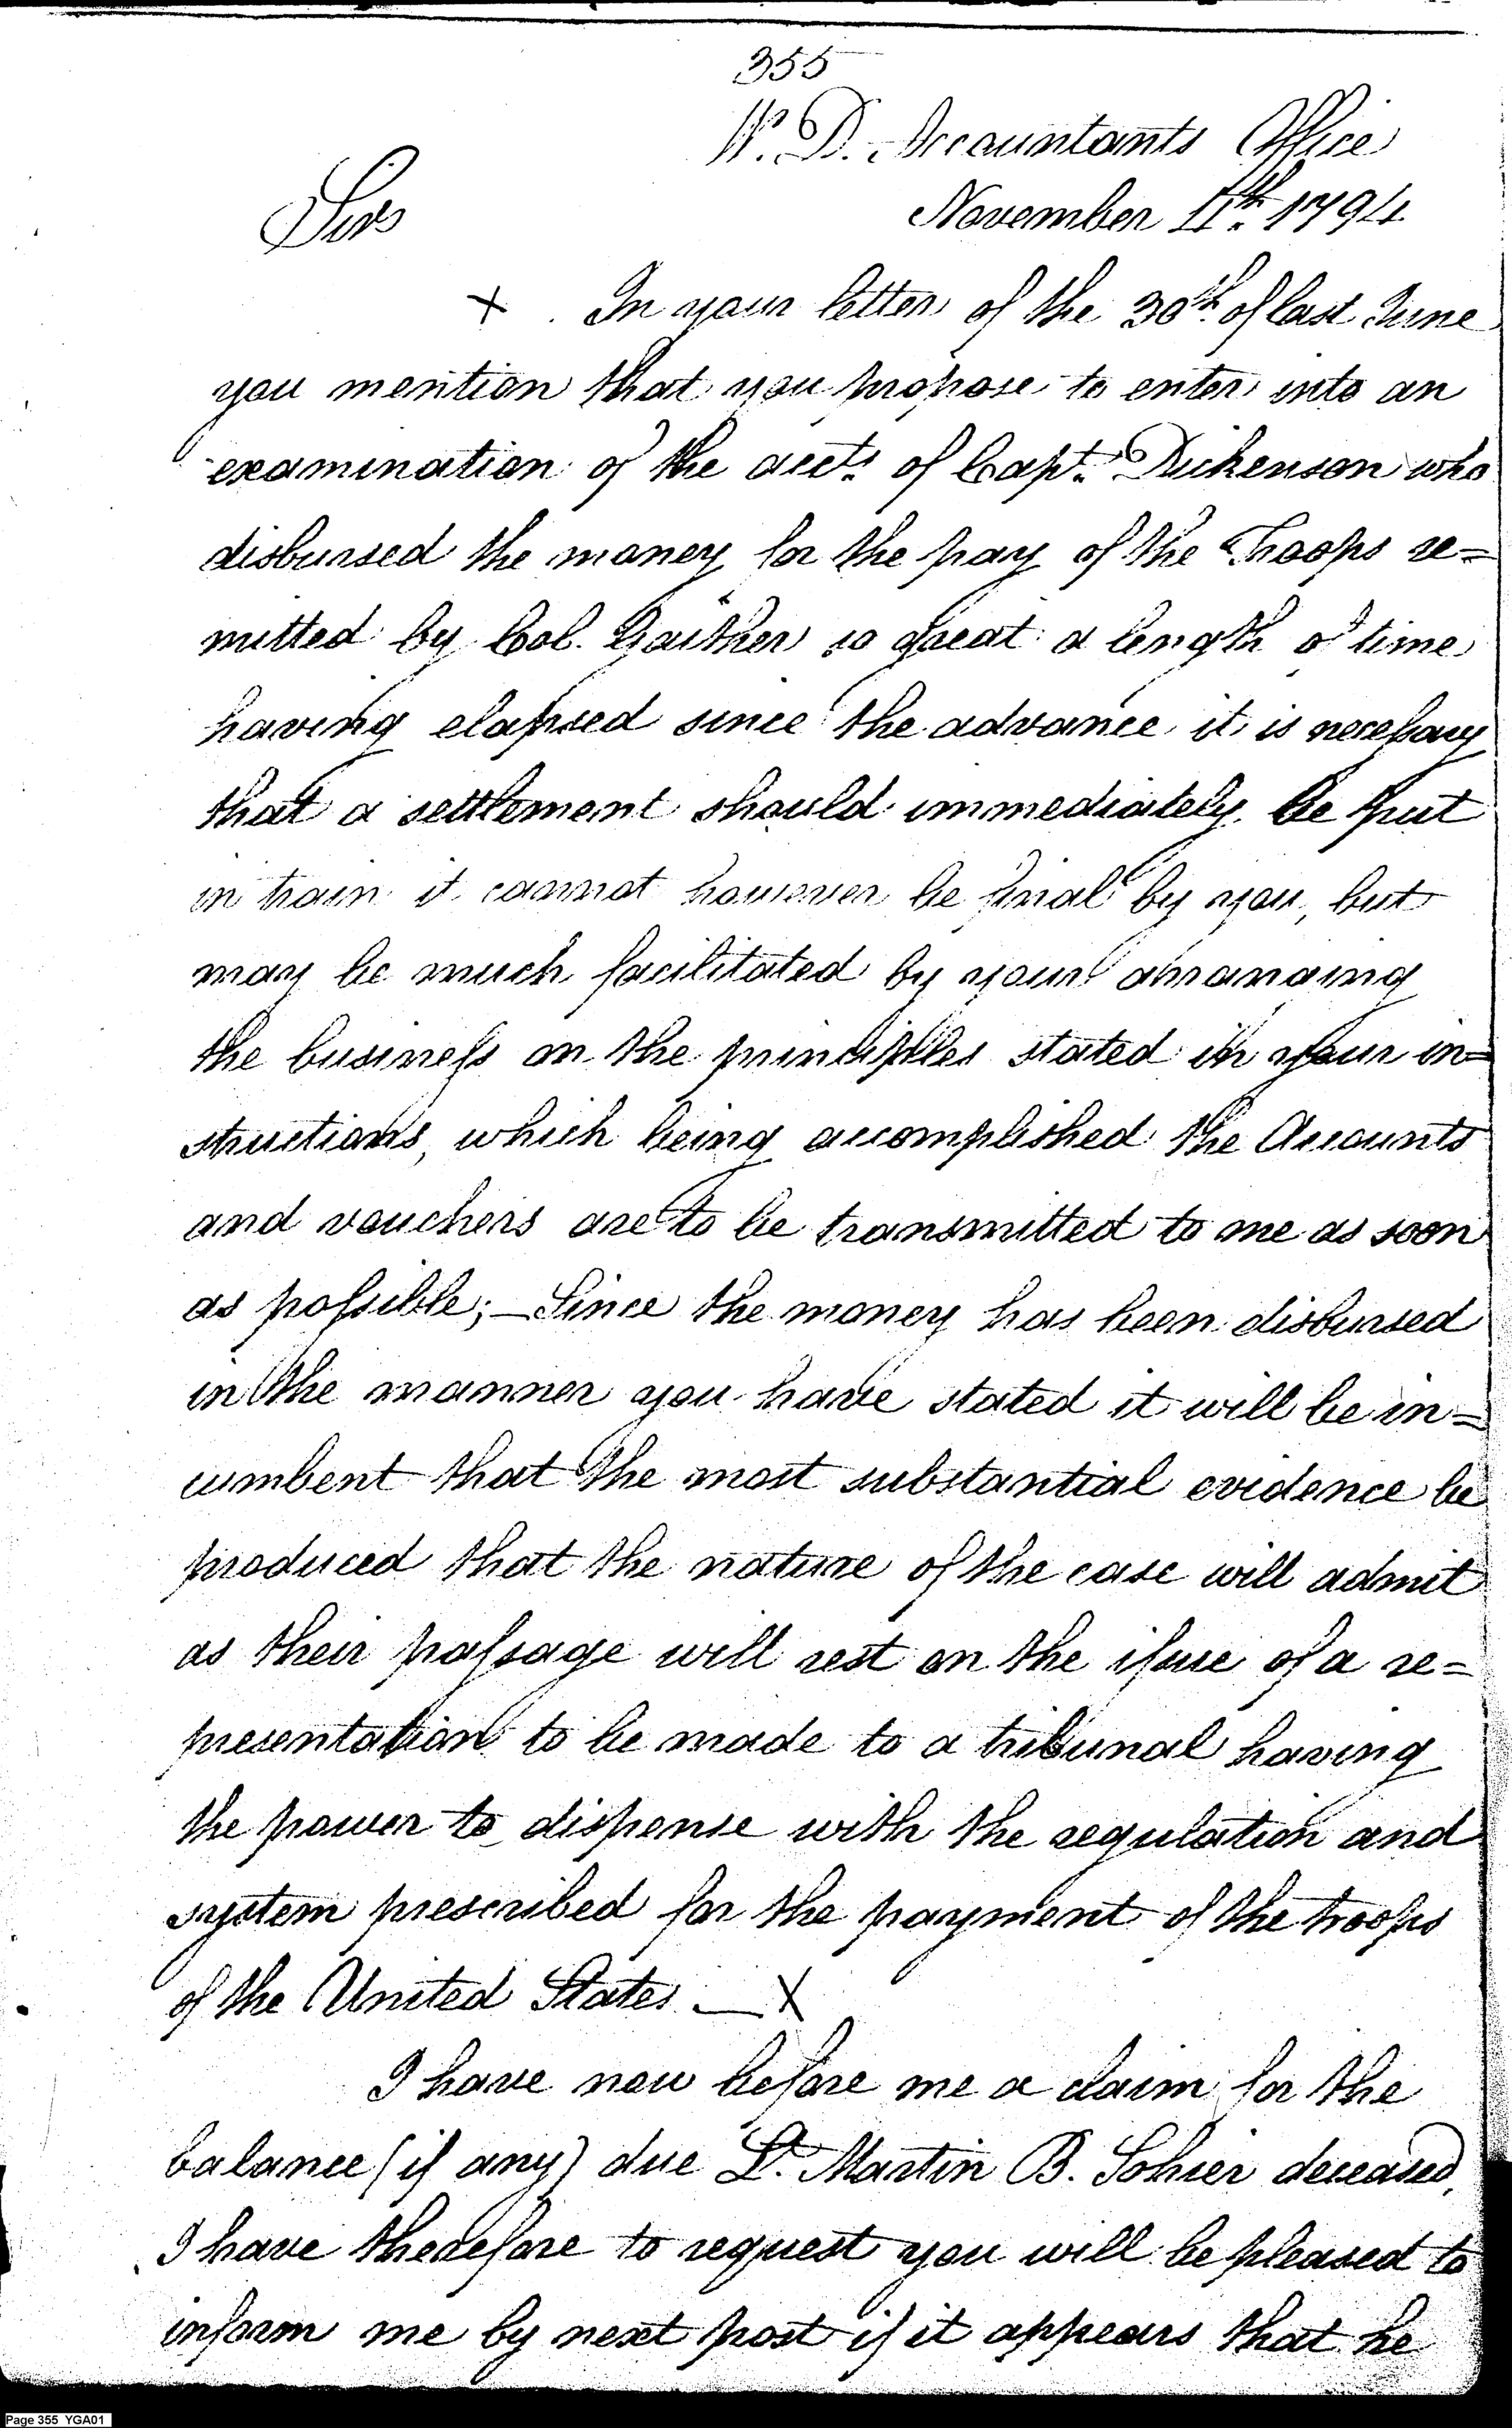 355
W. D. Accountants Office
November 4th. 1794
Sir
X . In your letter of the 30th. of last June
you mention that you propose to enter into an
examination of the acts. of Capt. Dickenson who
disbursed the money for the pay of the Troops re=
mitted by Col. Gaither so great a length of time
having elapsed since the advance it is necessary
that a settlement should immediately be put
in train it cannot however be final by you, but
may be much facilitated by your arranging
the business on the principles stated in your in=
structions, which being accomplished the Accounts
and vouchers are to be transmitted to me as soon
as possible;—Since the money has been disbursed
in the manner you have stated it will be in=
cumbent that the most substantial evidence be
produced that the nature of the case will admit
as their passage will rest on the issue of a re=
presentation to be made to a tribunal having
the power to dispense with the regulation and
system prescribed for the payment of the troops
of the United States — X
I have now before me a claim for the
balance (if any) due Lt. Martin B. Sohier deceased,
I have therefore to request you will be pleased to
inform me by next post if it appears that he
Page 355 YGA01